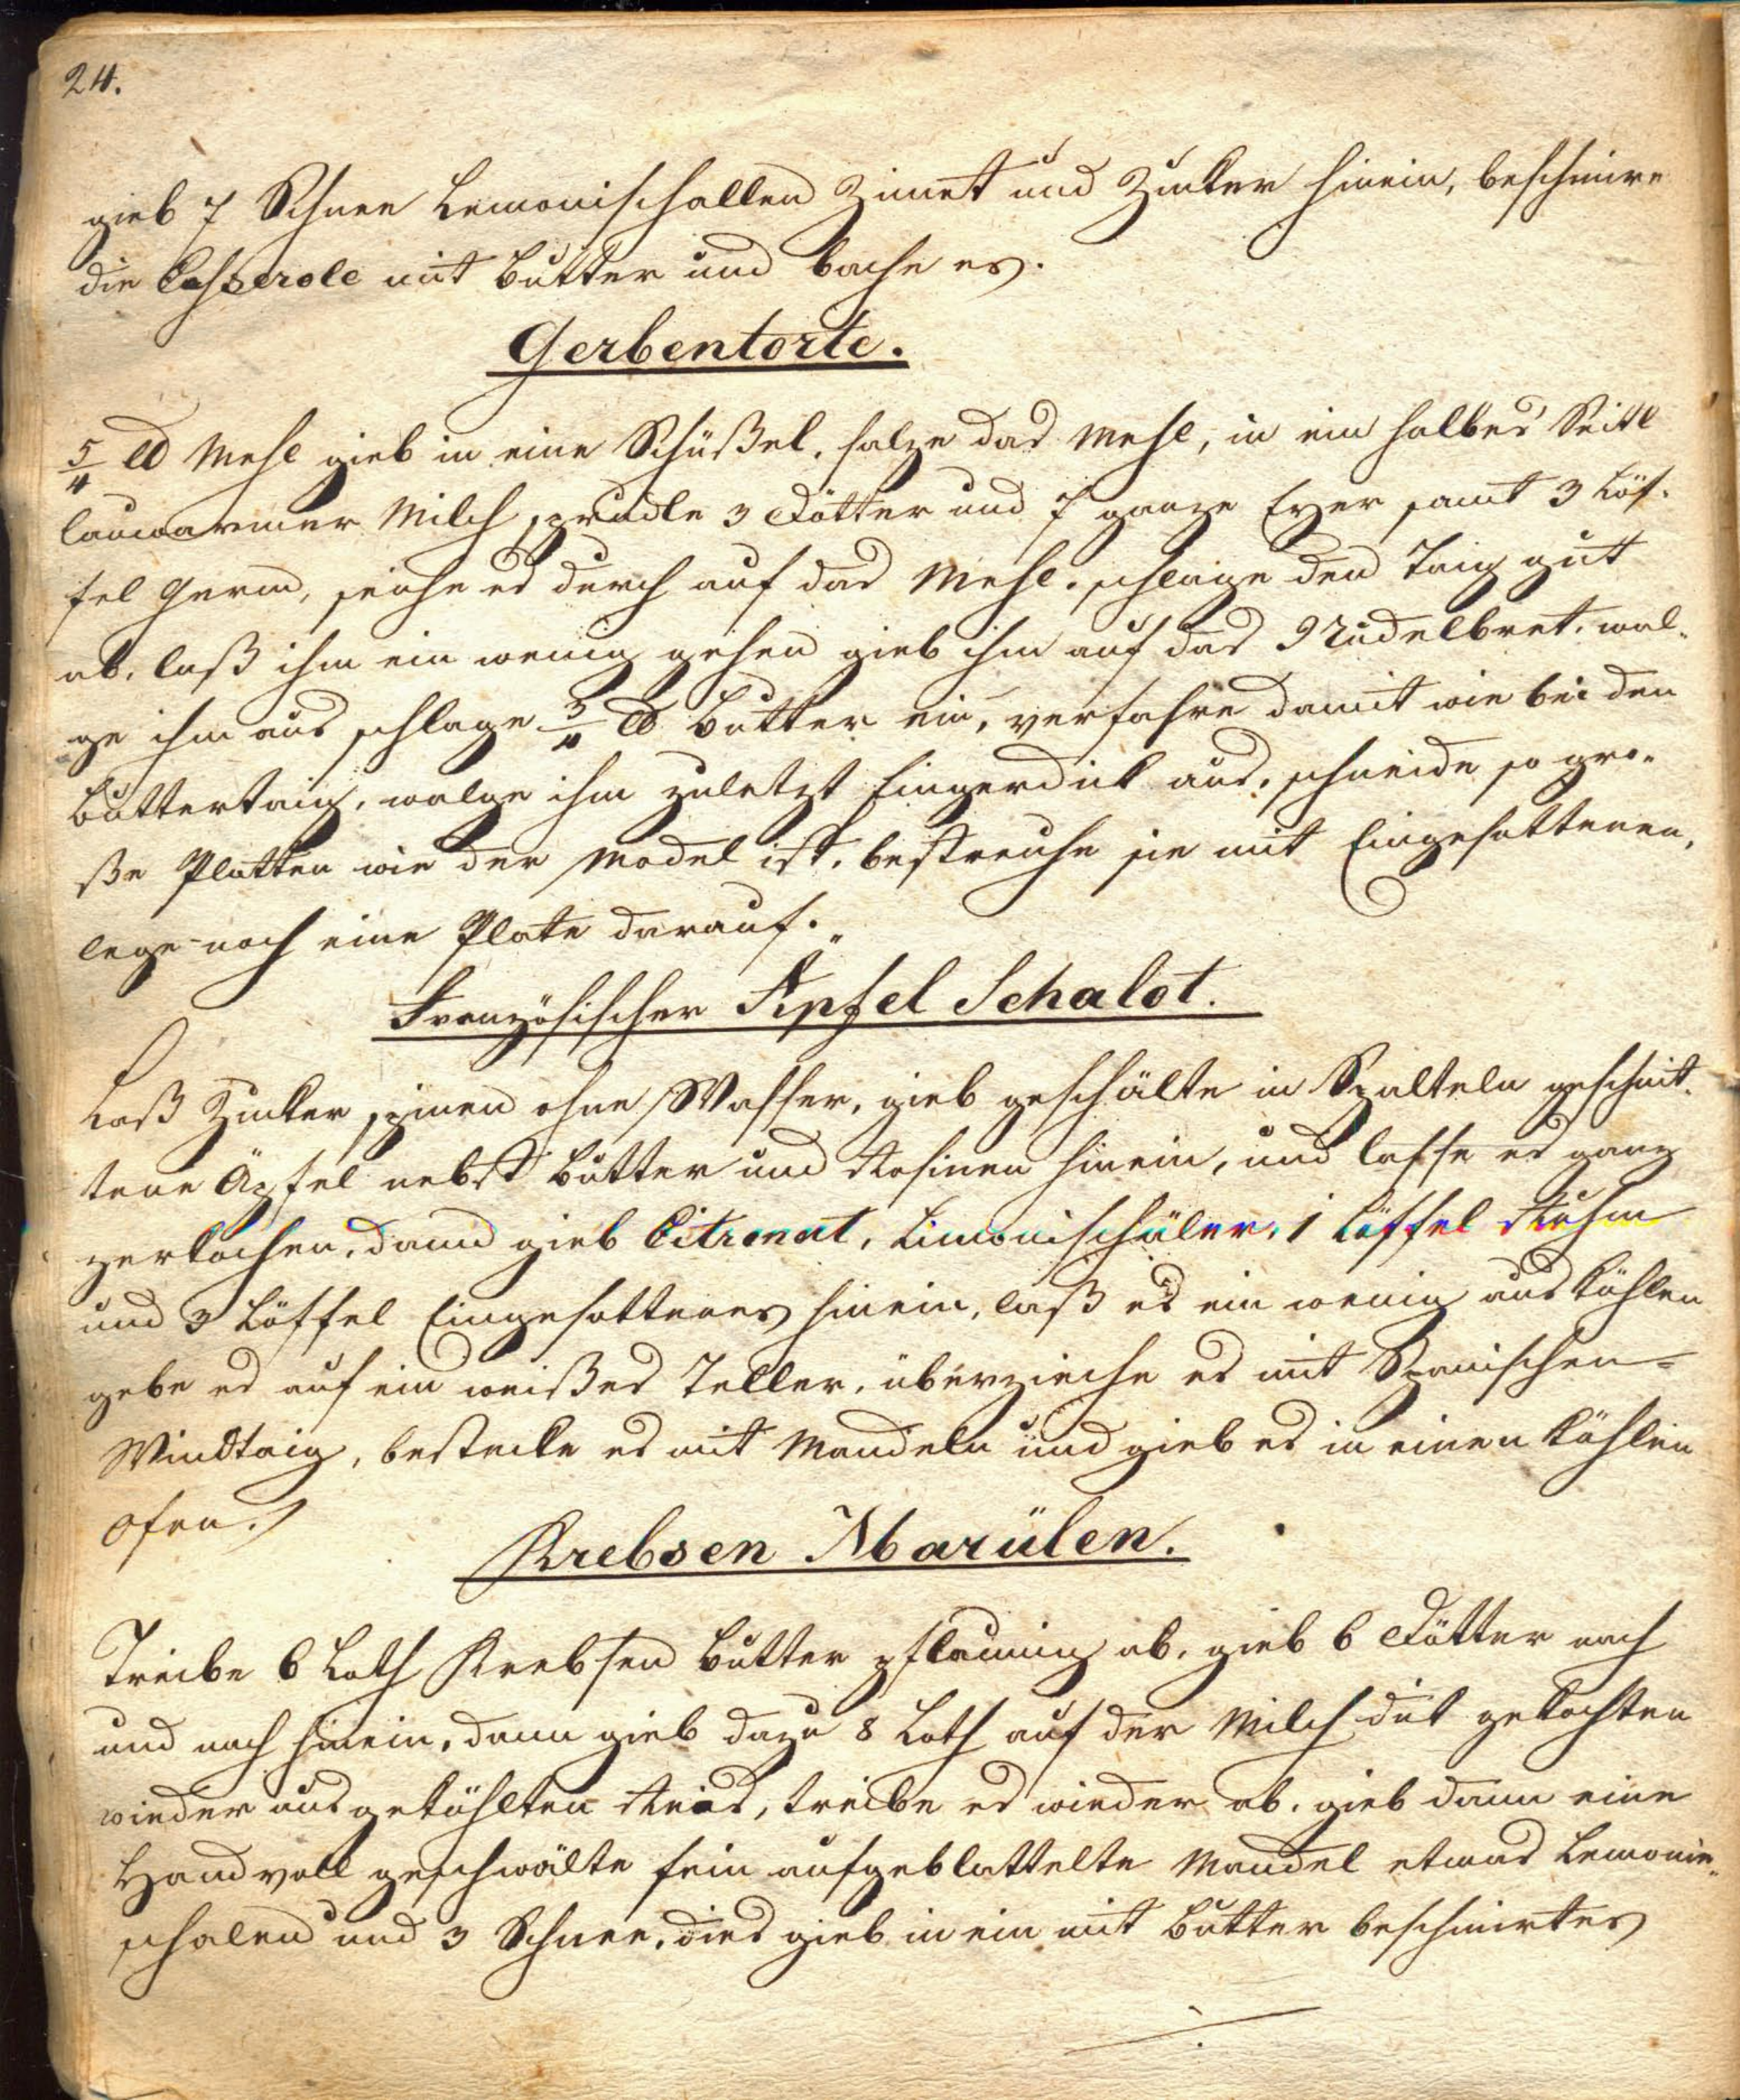 24.
gieb 7 Schnee Lemonischallen Zimet und Zucker hinein, beschmire
die Casserole mit Butter und bache es.
Gerbentorte.
5/4 ℔ Mehl gieb in eine Schüßel, salze das Mehl, in ein halbes Seitl
lauwarmer Milch sprudle 3 Dötter und 7 ganze Eyer samt 3 Löf-
fel Germ, seiche es durch auf das Mehl. schlage den Taig gut
ab, laß ihm ein wenig gehen gieb ihm auf das Nudelbret, wal-
ge ihm aus schlage 3/4 ℔ Butter ein, verfahre damit wie bei den
Buttertaig, walge ihm zuletzt fingerdick aus, schneide so gro-
ße Platten wie der Model ist, bestreuhe sie mit Eingesottenen,
lege noch eine Plate darauf.
Französischer Äpfel Schalot.
Laß Zucker spinen ohne Wasser, gieb geschälte in Spalteln geschnit-
tene Äpfel nebst Butter und Rosinen hinein, und lasse es ganz
zerkochen, dann gieb Citronat, Limonischäler, 1 Löffel Ruhm
und 3 Löffel Eingesottenes hinein, laß es ein wenig auskühlen
gebe es auf ein weißes Teller, überzieche es mit Spanischen-
Windtaig, bestecke es mit Mandeln und gieb es in einen kühlen
Ofen.
Krebsen Marülen.
Treibe 6 Loth Krebsen Butter pflaumig ab, gieb 6 Dötter nach
und nach hinein, dann gieb dazu 8 Loth auf der Milch dick gekochten
wieder ausgekühlten Reis, treibe es wieder ab, gieb dann eine
Handvoll geschwälte fein aufgeblattelte Mandel etwas Lemonie-
schalen und 3 Schnee, dies gieb in ein mit Butter beschmirtes